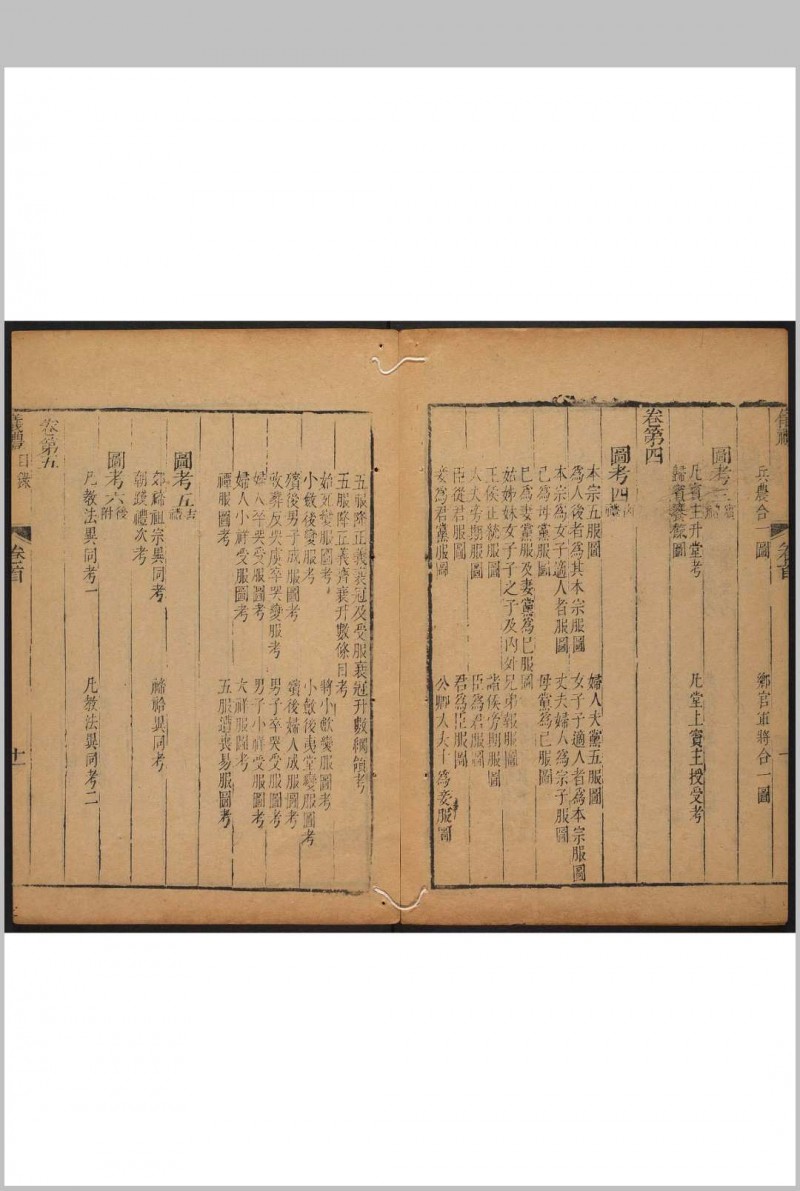 兵農合一圖　鄉官軍將合一圖
圖考三賓禮
凡賓主升堂考　凡堂上賓主授受考
歸賓饔餼圖
卷第四
圖考四凶禮
本宗五服圖　婦人夫黨五服圖
爲人後者爲其本宗服圖　女子子適人者爲本宗服圖
本宗爲女子適人者服圖　丈夫婦人爲宗子服圖
己爲母黨服圖　母黨爲己服圖
己爲妻黨服及妻黨爲己服圖
姑姊妹女子子之子及內外兄弟報服圖
王侯正統服圖　諸侯旁期服圖
大夫旁期服圖　臣爲君服圖
臣從君服圖　君爲臣服圖
妾爲君黨服圖　公卿大夫士爲妾服圖
五服降正義衰冠及受服衰冠升數總領考
五服降正義齊衰升數條目考
始死變服圖考　將小斂變服圖考
小斂後變服考　小斂後夷堂變服圖考
殯後男子成服圖考　殯後婦人成服圖考
啟葬反哭虞卒哭變服考　男子卒哭受服圖考
婦人卒哭受服圖考　男子小祥受服圖考
婦人小祥受服圖考　大祥服圖考
禫服圖考　五服遭喪易服圖考
圖考五吉禮
郊禘祖宗異同考　禘祫異同考
朝踐禮次考
圖考六後附
凡教法異同考一　凡教法異同考二
卷第五
儀禮　目錄　卷首　十一